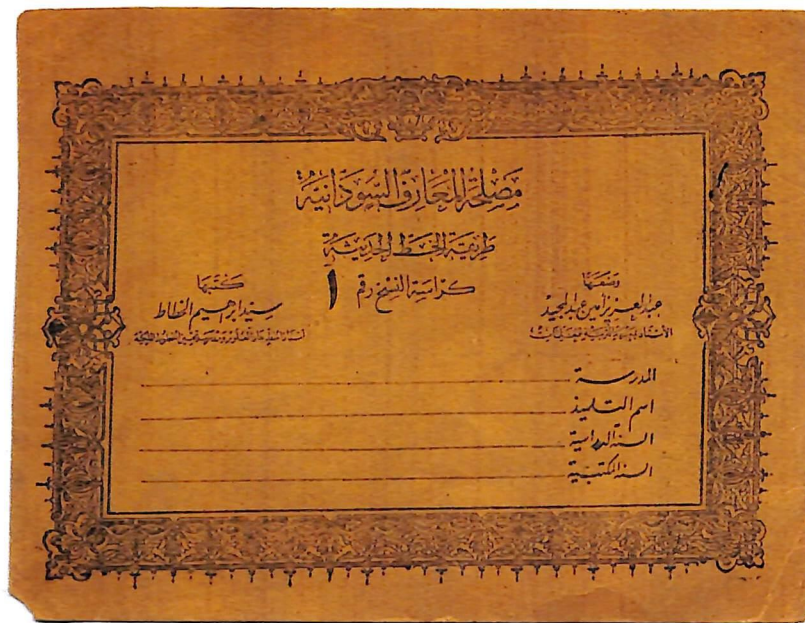 مصلحة المعارف السودانية
طريقة الخط الحديثة
كراسة النسخ رقم ١
وضعها
عبد العزيز أمين عبد المجيد
الأستاذ بمعهد التربية ببخت الرضا
كتبها
سيد ابراهيم الخطاط
المدرسة
اسم التلميذ
السنة الدراسية
السنة المكتبية